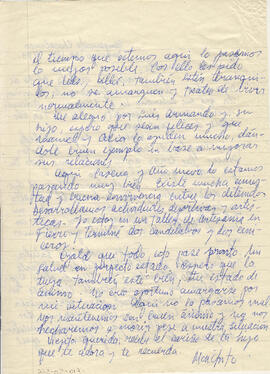 el tiempo que estemos aquí lo pasamos
lo mejor posible. Con ello les pido
que Uds., también estén tranqui-
los, no se amarguen y traten de vivir
normalmente.
Me alegro por Luis Armando y su
hijo, espero que sean felices y que
Manuel y Alicia lo cuiden mucho, dán-
dole buen ejemplo en base a mejorar
sus relaciones.
Aquí Navidad y Año nuevo lo estamos
pasando muy bien. Existe mucha amis-
tad y buena convivencia entre los detenidos
desarrollamos actividades deportivas y artís-
ticas. Yo estoy en un taller de artesanía en
fierro y terminé dos candelabros y dos ce-
niceros.
Ojalá que todo esto pase pronto. Mi
salud en perfecto estado, espero que la
tuya también esté bien,
ánimo, no
mi situación. Aquí no lo pasamos mal
nos mantenemos con buen ánimo y no nos
pese a nuestra situación
Viejita querida, recibe el cariño de tu hijo
que te adora y te recuerda.